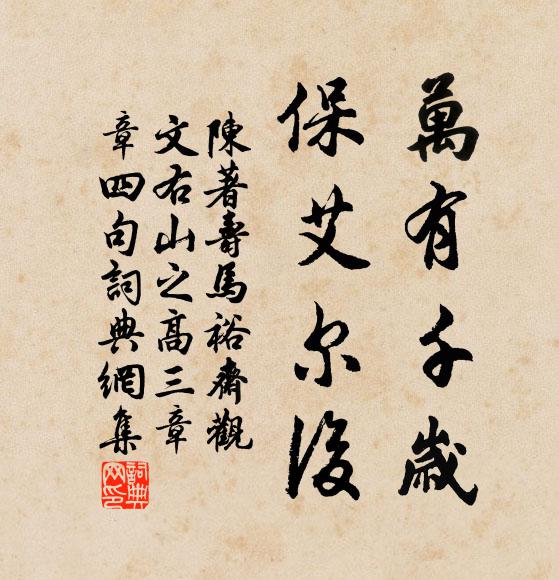 萬有千歲
保艾尔後
陳著壽馬裕齋觀
文右山之高三章
章四句詞典網集
詞典
网印